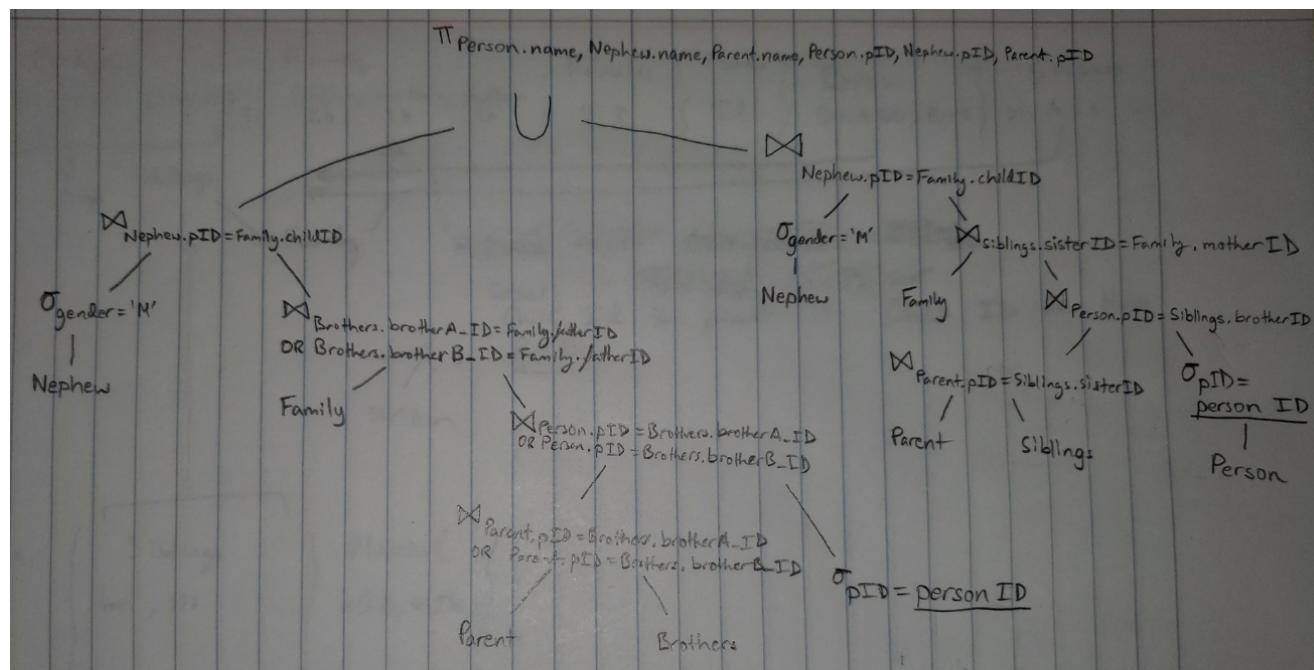 π Person.name, Nephew.name, Parent.name, Person.pID, Nephew.pID, Parent.pID
∪
⋈ Nephew.pID=Family.childID
σ gender='M'
Nephew
⋈ Brothers.brotherA_ID=Family.fatherID
OR Brothers.brotherB_ID=Family.fatherID
Family
⋈ Person.pID=Brothers.brotherA_ID
OR Person.pID=Brothers.brotherB_ID
⋈ Parent.pID=Brothers.brotherA_ID
OR Parent.pID=Brothers.brotherB_ID
Parent
Brothers
σ pID = person ID
⋈ Nephew.pID=Family.childID
σ gender='M'
Nephew
⋈ siblings.sisterID=Family.motherID
Family
⋈ Person.pID=Siblings.brotherID
⋈ Parent.pID=Siblings.sisterID
Parent
Siblings
σ pID=
person ID
Person